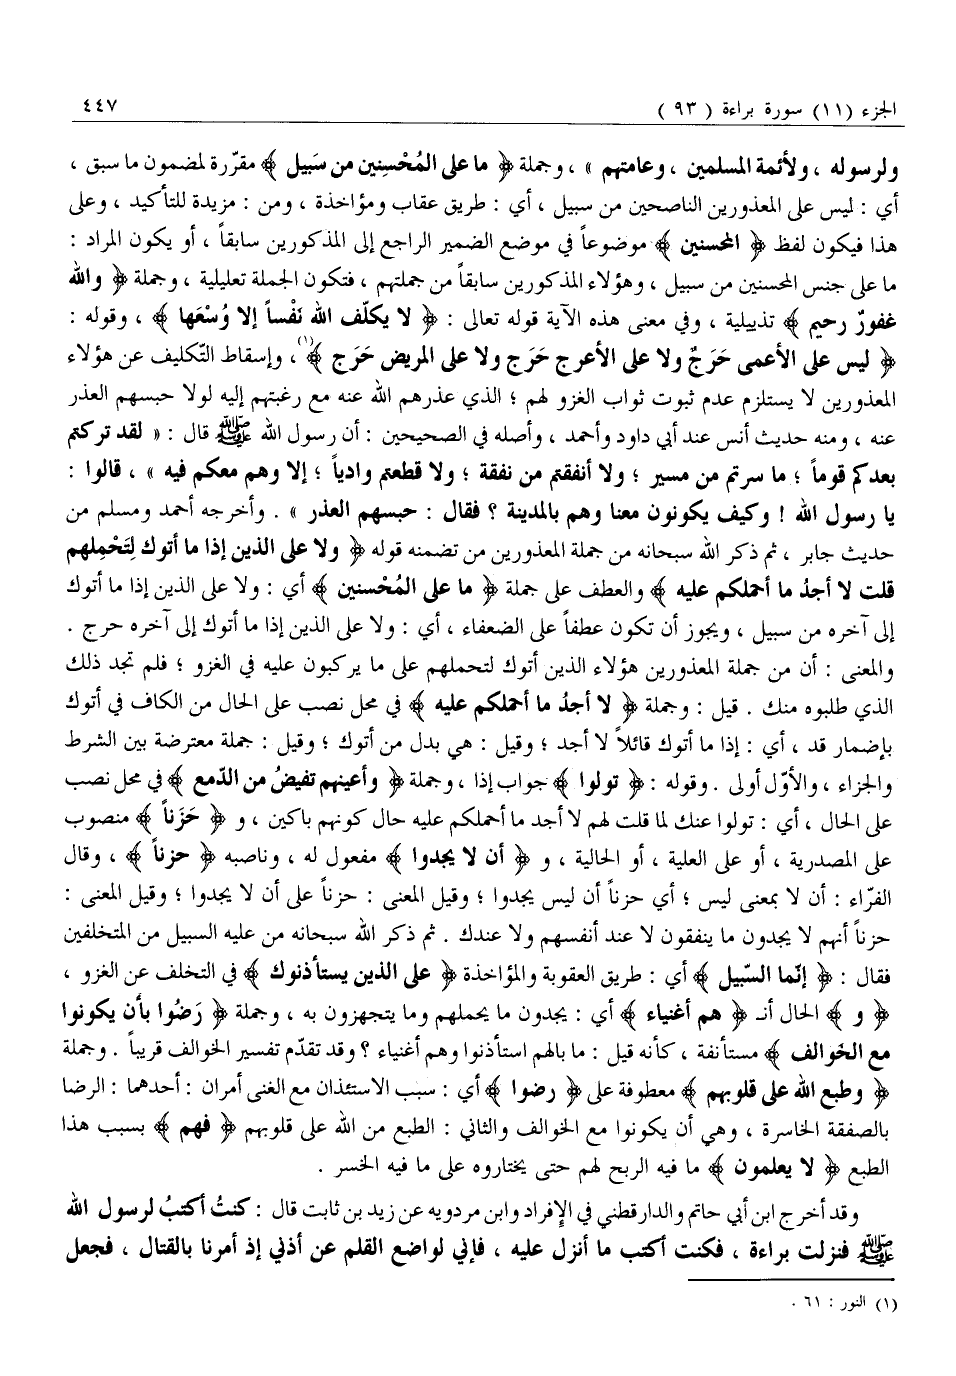 الجزء (١١) سورة براءة ( ٩٣ ) ٤٤٧
ولرسوله ، ولأئمة المسلمين ، وعامتهم » ، وجملة ﴿ ما على المُحْسِنِين من سَبيل ﴾ مقرّرة لمضمون ما سبق ،
أي : ليس على المعذورين الناصحين من سبيل ، أي : طريق عقاب ومؤاخذة ، ومن : مزيدة للتأكيد ، وعلى
هذا فيكون لفظ ﴿ المحسنين ﴾ موضوعاً في موضع الضمير الراجع إلى المذكورين سابقاً ، أو يكون المراد :
ما على جنس المحسنين من سبيل ، وهؤلاء المذكورين سابقاً من جملتهم ، فتكون الجملة تعليلية ، وجملة ﴿ والله
غفورٌ رحيم ﴾ تذييلية ، وفي معنى هذه الآية قوله تعالى : ﴿ لا يكلّف الله نَفْساً إلا وُسْعَها ﴾ ، وقوله :
﴿ ليس على الأعمى حَرَجٌ ولا على الأعرج حَرَج ولا على المريض حَرَج ﴾(١)، وإسقاط التّكليف عن هؤلاء
المعذورين لا يستلزم عدم ثبوت ثواب الغزو لهم ؛ الذي عذرهم الله عنه مع رغبتهم إليه لولا حبسهم العذر
عنه ، ومنه حديث أنس عند أبي داود وأحمد ، وأصله في الصحيحين : أن رسول الله ﷺ قال : « لقد تركتم
بعدكم قوماً ؛ ما سرتم من مسير ؛ ولا أنفقتم من نفقة ؛ ولا قطعتم وادياً ؛ إلا وهم معكم فيه » ، قالوا :
يا رسول الله ! وكيف يكونون معنا وهم بالمدينة ؟ فقال : حبسهم العذر » . وأخرجه أحمد ومسلم من
حديث جابر ، ثم ذكر الله سبحانه من جملة المعذورين من تضمنه قوله ﴿ ولا على الذين إذا ما أتوك لِتَحْمِلهم
قلت لا أجدُ ما أحملكم عليه ﴾ والعطف على جملة ﴿ ما على المُحْسنين ﴾ أي : ولا على الذين إذا ما أتوك
إلى آخره من سبيل ، ويجوز أن تكون عطفاً على الضعفاء ، أي : ولا على الذين إذا ما أتوك إلى آخره حرج .
والمعنى : أن من جملة المعذورين هؤلاء الذين أتوك لتحملهم على ما يركبون عليه في الغزو ؛ فلم تجد ذلك
الذي طلبوه منك . قيل : وجملة ﴿ لا أجدُ ما أحملكم عليه ﴾ في محل نصب على الحال من الكاف في أتوك
بإضمار قد ، أي : إذا ما أتوك قائلاً لا أجد ؛ وقيل : هي بدل من أتوك ؛ وقيل : جملة معترضة بين الشرط
والجزاء ، والأوّل أولى . وقوله : ﴿ تولوا ﴾ جواب إذا ، وجملة ﴿ وأعينهم تفيضُ من الدّمع ﴾ في محل نصب
على الحال ، أي : تولوا عنك لما قلت لهم لا أجد ما أحملكم عليه حال كونهم باكين ، و ﴿ حَزَناً ﴾ منصوب
على المصدرية ، أو على العلية ، أو الحالية ، و ﴿ أن لا يجدوا ﴾ مفعول له ، وناصبه ﴿ حزناً ﴾ ، وقال
الفرّاء : أن لا بمعنى ليس ؛ أي حزناً أن ليس يجدوا ؛ وقيل المعنى : حزناً على أن لا يجدوا ؛ وقيل المعنى :
حزناً أنهم لا يجدون ما ينفقون لا عند أنفسهم ولا عندك . ثم ذكر الله سبحانه من عليه السبيل من المتخلفين
فقال : ﴿ إنّما السّبيل ﴾ أي : طريق العقوبة والمؤاخذة ﴿ على الذين يستأذنوك ﴾ في التخلف عن الغزو ،
﴿ و ﴾ الحال أنـ ﴿ هم أغنياء ﴾ أي : يجدون ما يحملهم وما يتجهزون به ، وجملة ﴿ رَضُوا بأن يكونوا
مع الخَوالف ﴾ مستأنفة ، كأنه قيل : ما بالهم استأذنوا وهم أغنياء ؟ وقد تقدّم تفسير الخوالف قريباً . وجملة
﴿ وطبع الله على قلوبهم ﴾ معطوفة على ﴿ رضوا ﴾ أي : سبب الاستئذان مع الغنى أمران : أحدهما : الرضا
بالصفقة الخاسرة ، وهي أن يكونوا مع الخوالف والثاني : الطبع من الله على قلوبهم ﴿ فهم ﴾ بسبب هذا
الطبع ﴿ لا يعلمون ﴾ ما فيه الربح لهم حتى يختاروه على ما فيه الخسر .
وقد أخرج ابن أبي حاتم والدارقطني في الإفراد وابن مردويه عن زيد بن ثابت قال : كنتُ أكتبُ لرسول الله
ﷺ فنزلت براءة ، فكنت أكتب ما أنزل عليه ، فإني لواضع القلم عن أذني إذ أمرنا بالقتال ، فجعل
(١) النور : ٦١ .